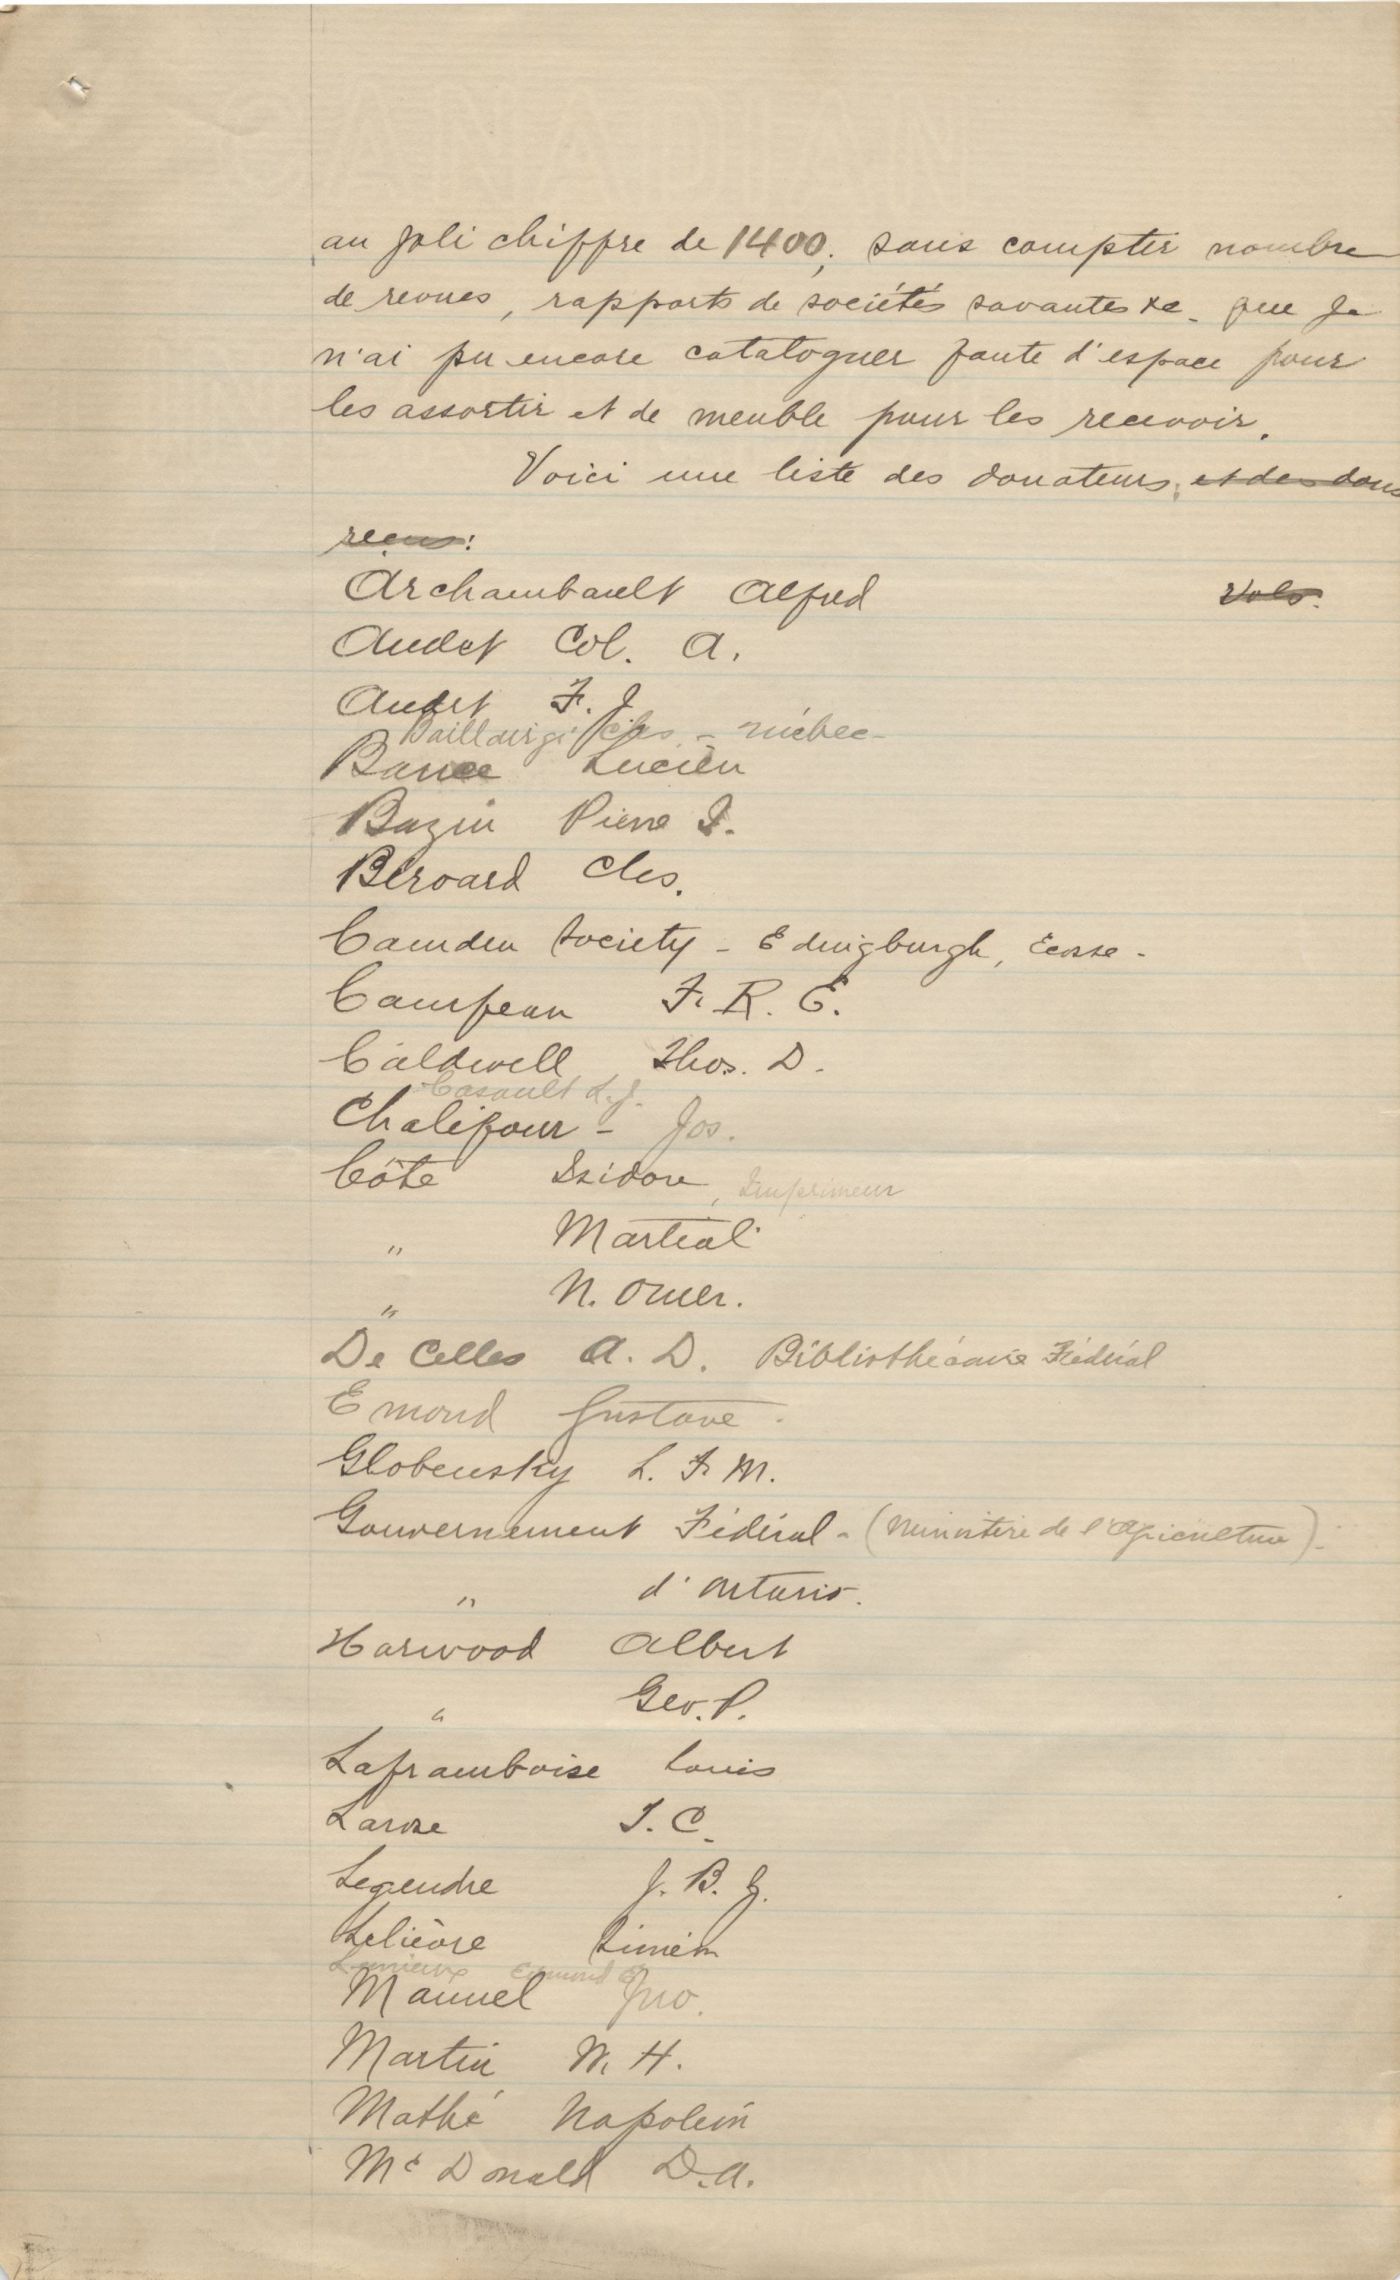 au joli chiffre de 1400; sans compter nombre
de revues, rapports de sociétés savantes &c. que je
n'ai pu encore cataloguer faute d'espace pour
les assortir et de meuble pour les recevoir.
Voici une liste des donateurs, et des dons
reçus:
Archambault Alfred Vols.
Audet Col. A.
Audet F. J.
Baillairgé Chs. - Québec -
Lucien
Bazin Pierre J.
Béroard Chs.
Camden Society - Edingburgh, Ecosse -
Campeau F. R. E.
Caldwell Thos. D.
Casault L. J.
Chalifour - Jos.
Côté Isidore, Imprimeur
" Martial
" N. Omer.
De Celles A. D. Bibliothécaire Fédéral
Emond Gustave.
Globensky L. F. M.
Gouvernement Fédéral - (Ministère de l'Agriculture) -
" d'Ontario.
Harwood Albert
" Geo. P.
Laframboise Louis
Larose T. C.
Legendre J. B. G.
Lelièvre Siméon
Lemieux Edmond E.
Manuel Jno.
Martin W. H.
Mathé Napoléon
Mc Donald D. A.